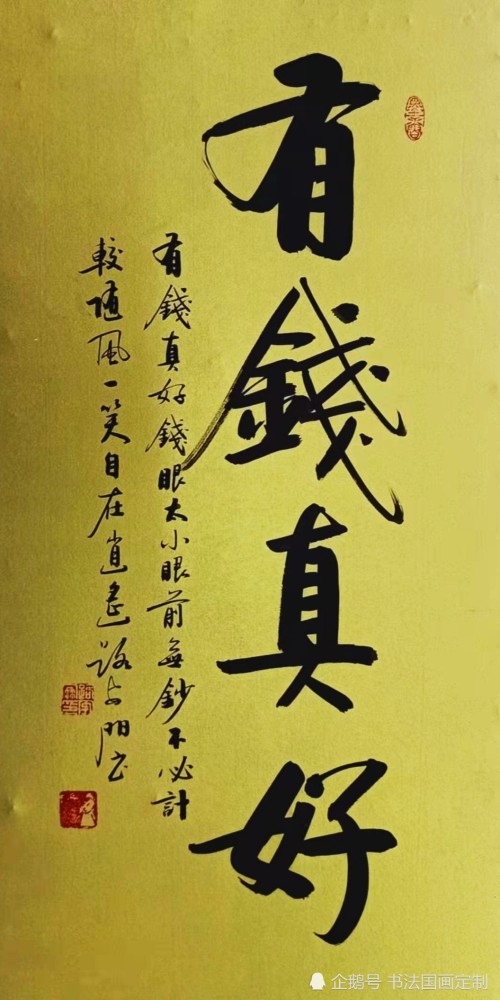 有錢真好
有錢真好錢眼太小眼前無鈔不必計
較隨風一笑自在逍遙路朋书
企鹅号 书法国画定制